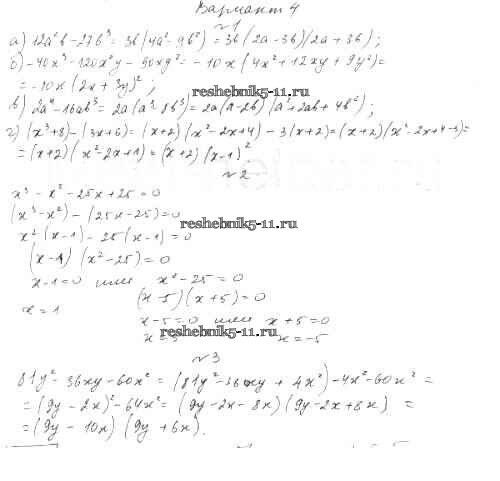 Вариант 4
№1
а) 12a²b - 27b³ = 3b(4a² - 9b²) = 3b(2a - 3b)(2a + 3b);
б) -40x³ - 120x²y - 90xy² = -10x(4x² + 12xy + 9y²) =
= -10x(2x + 3y)²;
reshebnik5-11.ru
в) 2a⁴ - 16ab³ = 2a(a³ - 8b³) = 2a(a - 2b)(a² + 2ab + 4b²);
г) (x³ + 8) - (3x + 6) = (x + 2)(x² - 2x + 4) - 3(x + 2) = (x + 2)(x² - 2x + 4 - 3) =
= (x + 2)(x² - 2x + 1) = (x + 2)(x - 1)²
№2
x³ - x² - 25x + 25 = 0
(x³ - x²) - (25x - 25) = 0
reshebnik5-11.ru
x²(x - 1) - 25(x - 1) = 0
(x - 1)(x² - 25) = 0
x - 1 = 0 или x² - 25 = 0
x = 1 (x - 5)(x + 5) = 0
x - 5 = 0 или x + 5 = 0
reshebnik5-11.ru
x = 5 x = -5
№3
81y² - 36xy - 60x² = (81y² - 36xy + 4x²) - 4x² - 60x² =
= (9y - 2x)² - 64x² = (9y - 2x - 8x)(9y - 2x + 8x) =
= (9y - 10x)(9y + 6x).